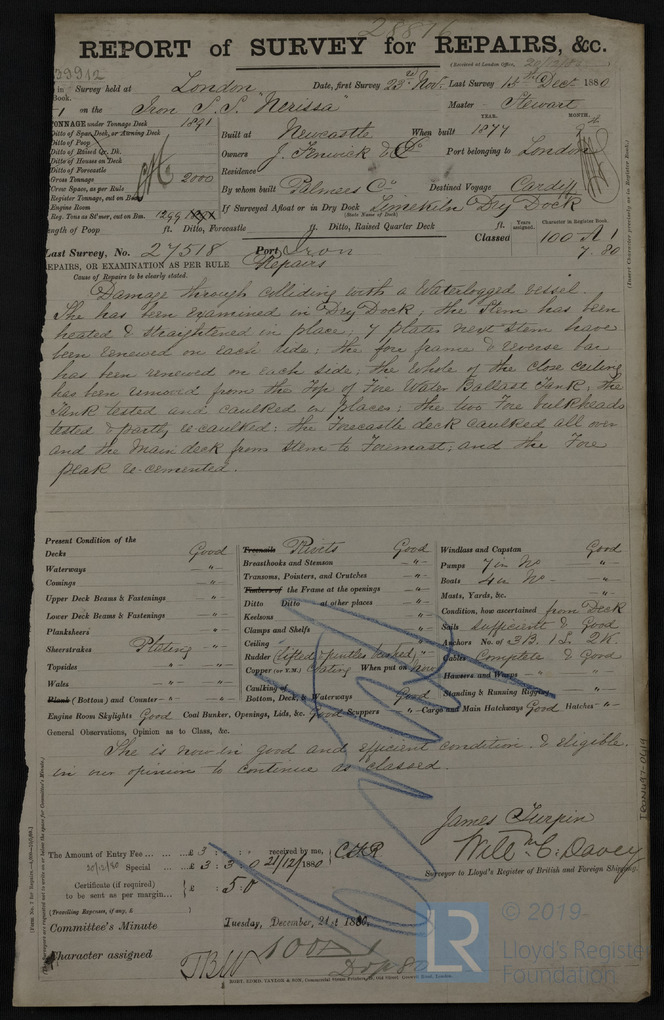 28816
REPORT of SURVEY for REPAIRS, &c.
(Received at London Office,
39912
in Survey held at London Date, first Survey 23rd Nov. Last Survey 1st Decr 1880
Book.
on the Iron S.S. "Nerissa" Master Stewart
TONNAGE under Tonnage Deck 1891
Ditto of Spar Deck, or Awning Deck
Ditto of Poop
Ditto of Raised Qr. Dk.
Ditto of Houses on Deck
Ditto of Forecastle
Gross Tonnage 2000
Crew Space, as per Rule
Register Tonnage, out on
Engine Room
Reg. Tons as St'mer, cut on Bm. 1299
YEAR. MONTH.
Built at Newcastle When built 1877
Owners J. Fenwick & Co Port belonging to London
Residence
By whom built Palmers Co. Destined Voyage Cardiff
If Surveyed Afloat or in Dry Dock Limekiln Dry Dock
(State Name of Dock)
Length of Poop ft. Ditto, Forecastle ft. Ditto, Raised Quarter Deck ft.
Years assigned. Character in Register Book.
Classed 100 A 1
7.80
(Insert Character precisely as in Register Book.)
Last Survey, No. 27518 Port Iron
REPAIRS, OR EXAMINATION AS PER RULE Repairs
Cause of Repairs to be clearly stated.
Damage through colliding with a Waterlogged vessel.
She has been examined in Dry Dock; the Stem has been
heated & straightened in place; 7 plates next stem have
been renewed on each side; the fore frame & reverse bar
has been renewed on each side; the whole of the close ceiling
has been removed from the Top of Fore Water Ballast Tank, the
Tank tested and caulked in places; the two Fore bulkheads
tested & partly re-caulked; the Forecastle deck caulked all over
and the Main deck from stem to Foremast, and the Fore
peak re-cemented.
Present Condition of the
Decks Good
Waterways "
Comings "
Upper Deck Beams & Fastenings "
Lower Deck Beams & Fastenings "
Planksheers "
Sheerstrakes Plating "
Topsides " "
Wales " "
Plank (Bottom) and Counter " "
Engine Room Skylights Good Coal Bunker, Openings, Lids, &c. Good Scuppers " Cargo and Main Hatchways Good Hatches "
Treenails Rivets Good
Breasthooks and Stemson "
Transoms, Pointers, and Crutches "
Timbers of the Frame at the openings "
Ditto Ditto at other places "
Keelsons "
Clamps and Shelfs "
Ceiling "
Rudder (lifted pintles bushed) "
Copper (or Y.M.) Coating When put on none
Caulking of
Bottom, Deck, & Waterways Good
Windlass and Capstan Good
Pumps 7 in No "
Boats 4 in No "
Masts, Yards, &c. "
Condition, how ascertained from Deck
Sails sufficient & Good
Anchors No. of 3B. 1S. 2K
Cables Complete & Good
Hawsers and Warps " "
Standing & Running Rigging "
General Observations, Opinion as to Class, &c.
She is now in good and efficient condition & eligible
in our opinion to continue as classed.
James Turpin
Willm C. Davey
Surveyor to Lloyd's Register of British and Foreign Shipping.
The Amount of Entry Fee £ 3 : : received by me,
20/12/80 Special £ 3 : 3 : 0 21/12/1880
Certificate (if required) £ : 5 : 0
to be sent as per margin
(Travelling Expenses, if any, £ )
Committee's Minute Tuesday, December, 21st 1880.
Character assigned 100 A 1
© 2019
Lloyd's Registe
Foundation